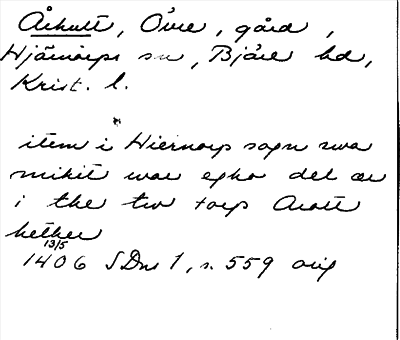 Århult, Övre, gård,
Hjärnarps sn, Bjäre hd,
Krist. l.
item i Hiernarp sogn swa
mikit wor egho del ær
i the tw torp Aroltt
hether
13/5
1406 SDns 1, s. 559 orig